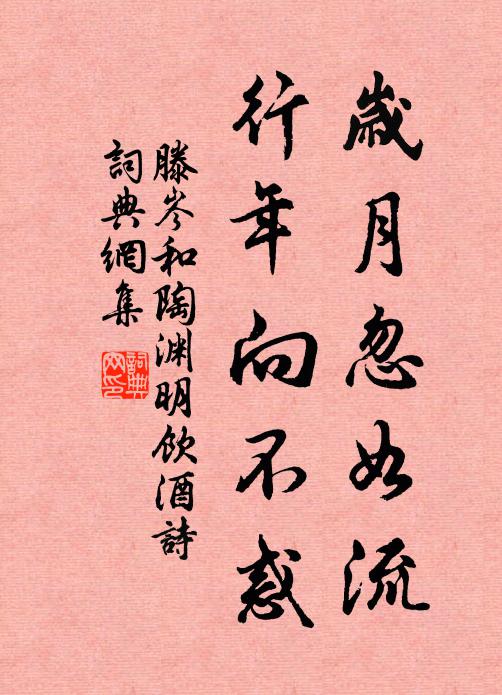 歲月忽如流
行年向不惑
滕岑和陶渊明饮酒詩
詞典網集
詞典
网印